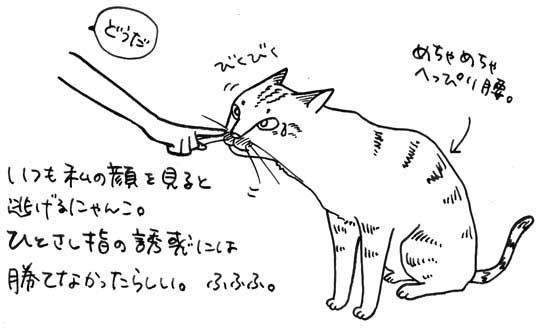 どうだ
びくびく
めちゃめちゃ
へっぴり腰。
いつも私の顔を見ると
逃げるにゃんこ。
ひとさし指の誘惑には
勝てなかったらしい。 ふふふ。